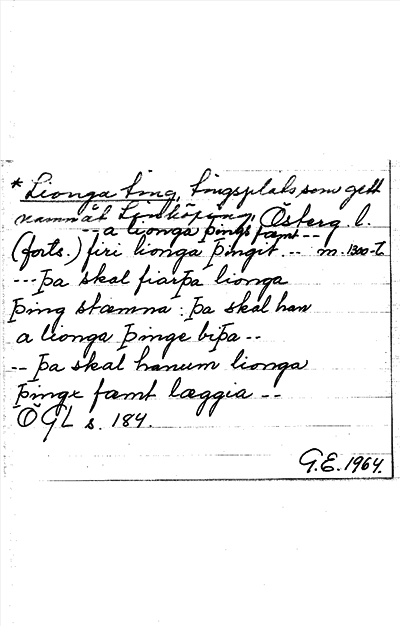 * Lionga ting, tingsplats som gett
namn åt Linköping, Österg. l.
-- a lionga þings fæmt --
(forts.) firi lionga þingit -- m. 1300-t.
--- þa skal fiarþa lionga
þing stæmna : þa skal han
a lionga þinge biþa --
-- þa skal hanum lionga
þinge fæmt læggia --
ÖGL s. 184.
G.E. 1964.